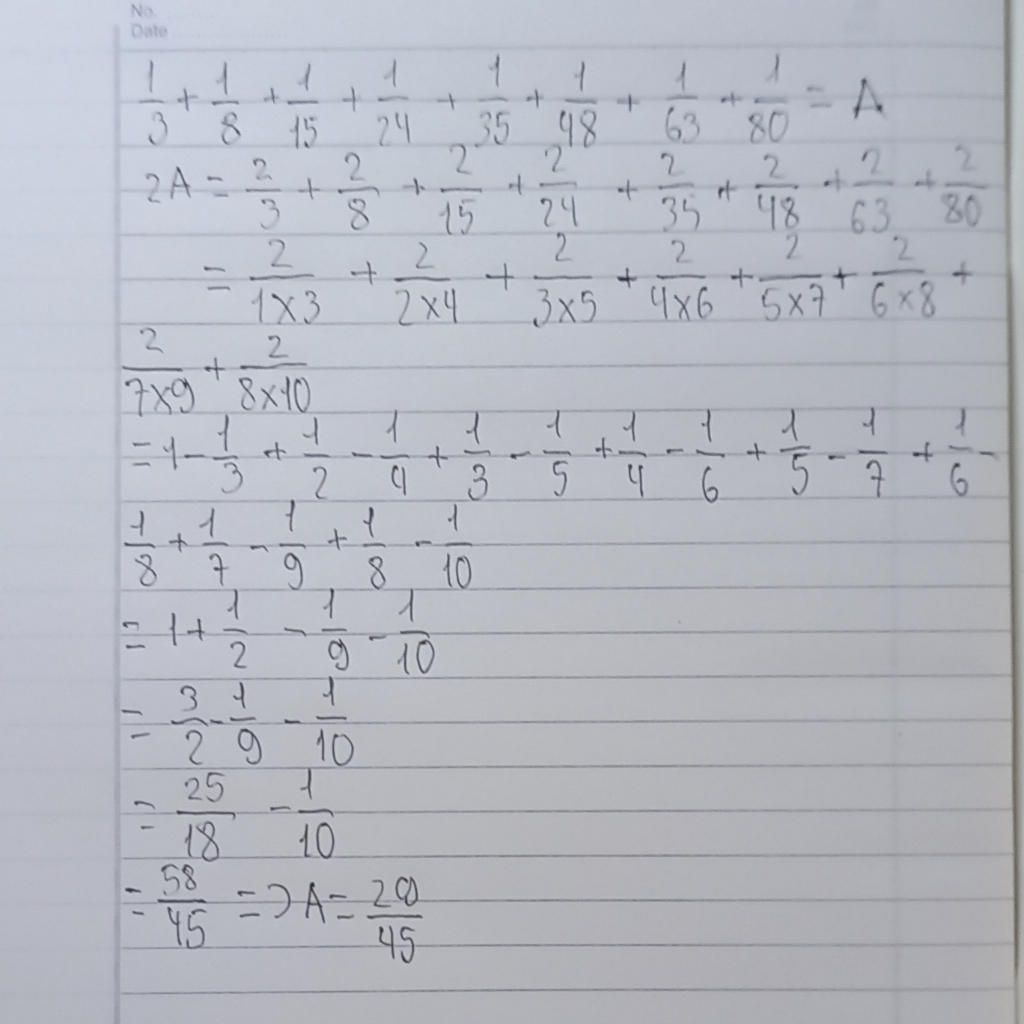 No.
Date
1/3 + 1/8 + 1/15 + 1/24 + 1/35 + 1/48 + 1/63 + 1/80 = A
2A = 2/3 + 2/8 + 2/15 + 2/24 + 2/35 + 2/48 + 2/63 + 2/80
= 2/(1×3) + 2/(2×4) + 2/(3×5) + 2/(4×6) + 2/(5×7) + 2/(6×8) +
2/(7×9) + 2/(8×10)
= 1 - 1/3 + 1/2 - 1/4 + 1/3 - 1/5 + 1/4 - 1/6 + 1/5 - 1/7 + 1/6 -
1/8 + 1/7 - 1/9 + 1/8 - 1/10
= 1 + 1/2 - 1/9 - 1/10
= 3/2 - 1/9 - 1/10
= 25/18 - 1/10
= 58/45 => A = 29/45